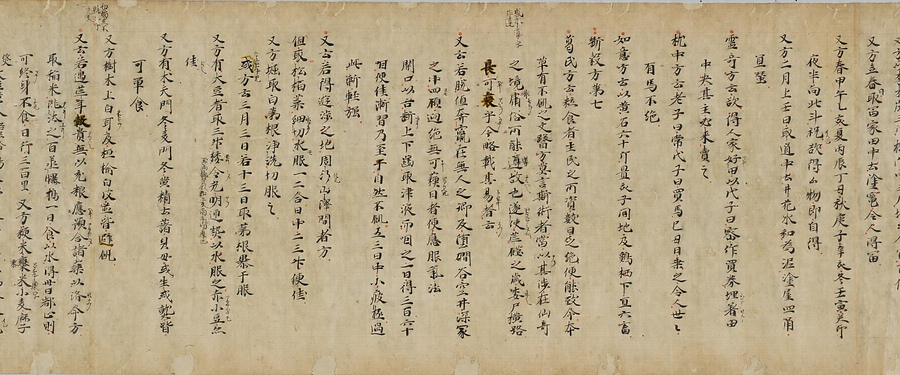 又方立春取富家田中土塗竈令人得富
又方春甲午乙亥夏丙辰丁丑秋庚子辛亥冬壬寅癸卯
夜半向北斗祝欲得百物即自得
又方二月上壬日取道中土井花水和為泥塗屋四角
宜蚕
靈奇方云欲得人家好田以戊子日密作買券埋著田
中央其主必來賣之
枕中方云老子曰常戊子日買馬己巳日乗之令人世〻
有馬不絶
如意方云以黄石六十斤置亥子間地及鶏栖下宜六畜
断穀方第七
葛氏方云粒食者生民之所資數日乏絶便能致命本
草有不飢之文醫方莫言斯術者當以其渉在仙奇
之境庸俗所能遵故也遂使荒磎之歳委尸横路
良可哀乎今略載其易者云
又云若脱値奔竄在無人之郷及堕㵎谷空井深冢
之中四顧迥絶無可藉口者便應服氣法
開口以舌断上下齒取津液而咽之一日得三百六十
咽便佳漸習乃至千自然不飢五三日中小疲極過
此漸軽強
又云若得遊涼之地周行山澤間者方
但取松栢葉細切水服一二合日中二三升便佳
又方堀取白茅根浄洗切服之
或方云三月三日若十三日取茅根曝干服
又方有大豆者取三升挼令光明遍熱以水服之赤小豆亦
佳
又方有朮天門冬麦門冬黄精貝母或生或熟皆
可單食
又方樹木上白耳及檀榆白皮並皆避飢
又云若遇荒年穀貴無以充粮應須合諸藥以済命方
取稲米洮汰之百蒸曝擣一日食以水得卅日都止則
可終身不食日行三百里 又方粳米黍米小麦麻子